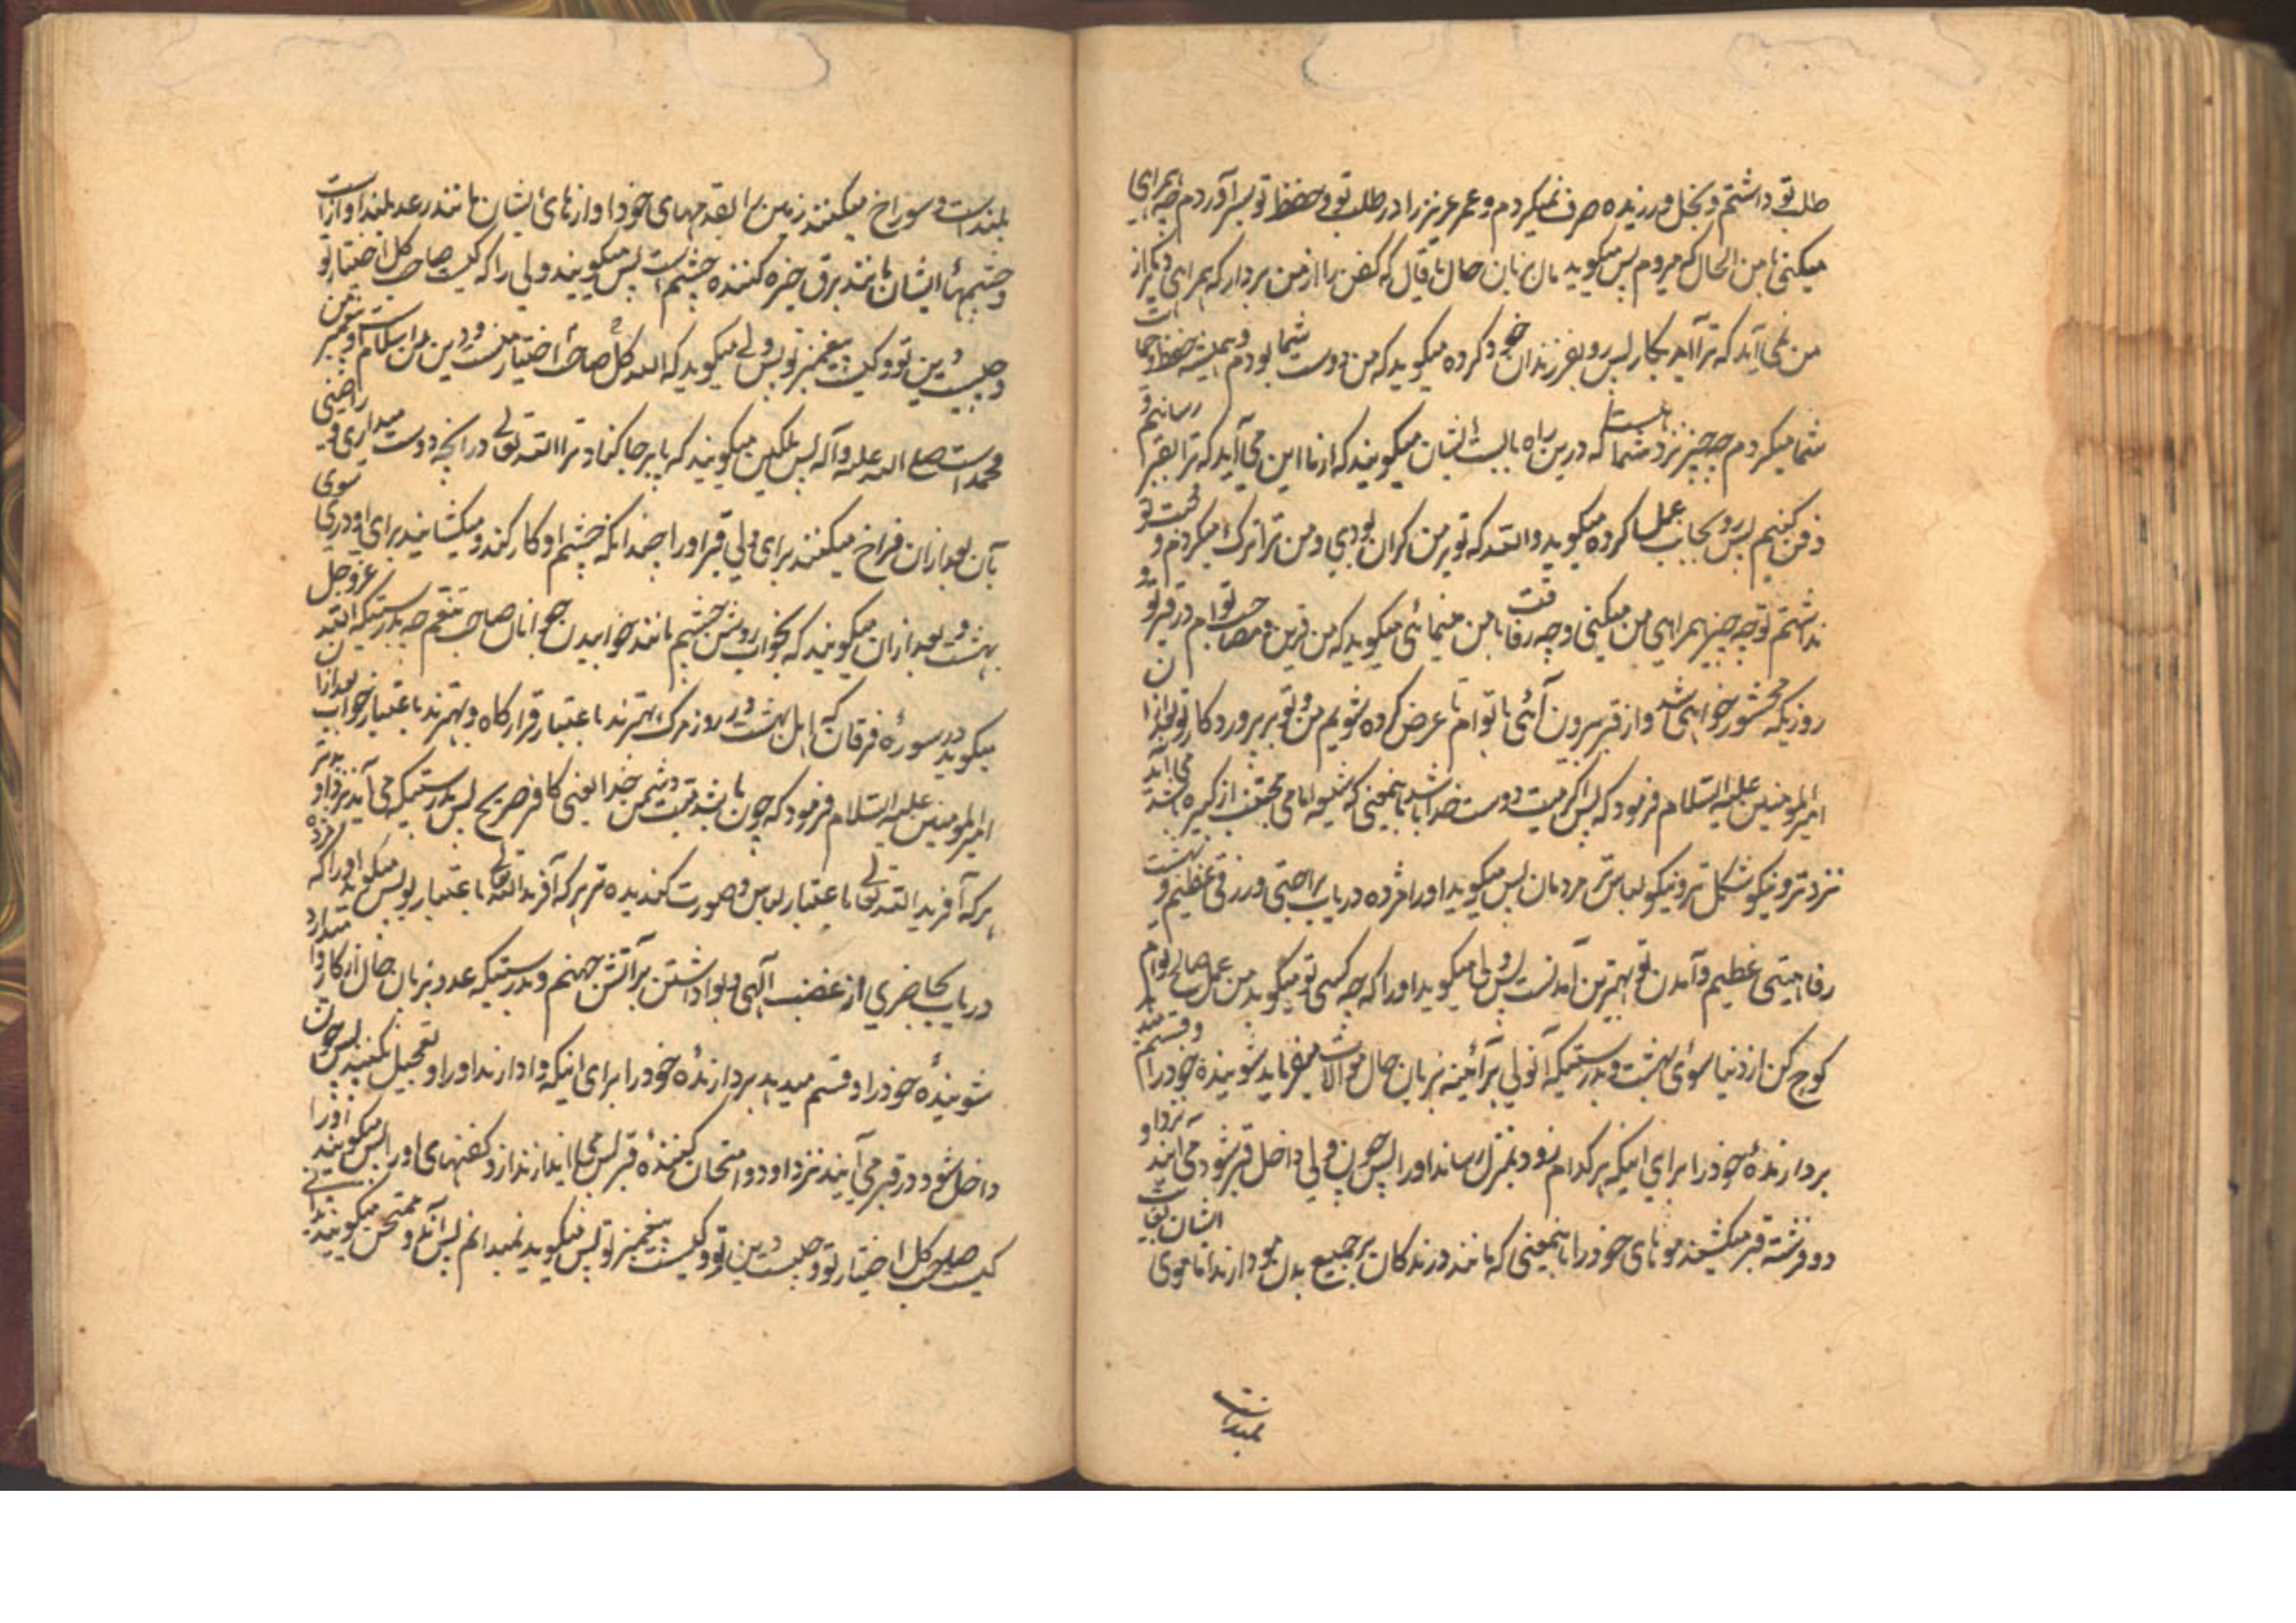 طلب تو داشتم و بخل ورزیده صرف نمیکردم و عمر عزیز را در طلب تو و حفظ تو بسر آوردم چه همراهی
میکنی با من الحال که میروم پس میگوید مال بزبان حال یا قال که کفن را از من بردار که همراهی دیگر از
من نمی آید که ترا آید بکار پس رو بفرزندان خود کرده میگوید که من دوست شما بودم و همیشه حفظ و حمایت
شما میکردم چه چیز نزد شما هست که درین راه بایست ایشان میگویند که از ما این می آید که ترا بقبر رسانیم و
دفن کنیم پس رو بجانب عمل کرده میگوید والله که تو بر من گران بودی و من ترا ترک میکردم و محبت تو
نداشتم تو چه چیز همراهی من میکنی و چه رفاقت با من مینمائی میگوید که من قرین و مصاحب توام در قبر تو و
روزیکه محشور خواهی شد و از قبر بیرون آئی با توام تا عرض کرده شویم من و تو بر پروردگار تو بعد ازان
امیرالمومنین علیه السلام فرمود که پس اگر میت دوست خدا باشد باینمعنی که شیعه امامی مجتنب از کبیره باشد می آید
نزد او نیکو شکل تر و نیکو لباس تر مردمان پس میگوید او را مژده دریاب براحتی و رزقی عظیم و بهشت
رفاهیتی عظیم و آمدن تو بهترین آمدنست پس ولی میگوید او را که چه کسی تو میگوید من عمل صالح توام
کوچ کن از دنیا سوی بهشت و بدرستیکه آن ولی هر آئینه بزبان حال موالات میفرماید شوینده خود را و قسم میدهد
بردارنده خود را برای اینکه هر کدام زود بمنزل رساند او را پس چون ولی داخل قبر شود می آیند نزد او
دو فرشته قبر میکشند موهای خود را باینمعنی که مانند درندگان بر جمیع بدن مو دارند اما موی ایشان بغایت
بلند است
بلند است و سوراخ میکنند زمین را بقدمهای خود آوازهای ایشان مانند رعد بلند آواز است
و چشمهای ایشان مانند برق خیره کننده چشم است پس میگویند ولی را که کیست صاحب کل اختیار تو
و چیست دین تو و کیست پیغمبر تو پس ولی میگوید که الله کل صاحب اختیار منست و دین من اسلام است و پیغمبر من
محمد است صلی الله علیه و آله پس ملکین میگویند که پابرجا کناد ترا الله تعالی در آنچه دوست میداری و راضی شوی
بآن بعد ازان فراخ میکنند برای ولی قبر او را چندانکه چشم او کار کند و میگشایند برای او دری سوی
بهشت و بعد ازان میگویند که بخواب روشن چشم مانند خوابیدن جوانان صاحب تنعم چه بدرستیکه الله عزوجل
میگوید در سورهٔ فرقان که اهل بهشت در روز مرگ بهترند باعتبار قرارگاه و بهترند باعتبار خواب بعد ازان
امیرالمومنین علیه السلام فرمود که چون باشد میت دشمن خدا یعنی کافر صریح پس بدرستیکه می آید نزد او بدتر
هر که آفرید الله تعالی باعتبار لباس و صورت گندیده تر هر که آفرید الله تعالی باعتبار بو پس میگوید او را که مژده
دریاب بحاضری از غضب الهی و واداشتن بر آتش جهنم و بدرستیکه عدو بزبان حال انکار وا
شویندهٔ خود را و قسم میدهد بردارندهٔ خود را برای اینکه وادارند او را و تعجیل نکنند پس چون
داخل شود در قبر می آیند نزد او دو امتحان کنندهٔ قبر پس می اندازند از او کفنهای او را پس میگویند او را
کیست صاحب کل اختیار تو و چیست دین تو و کیست پیغمبر تو پس میگوید نمیدانم پس آن دو ممتحن میگویند